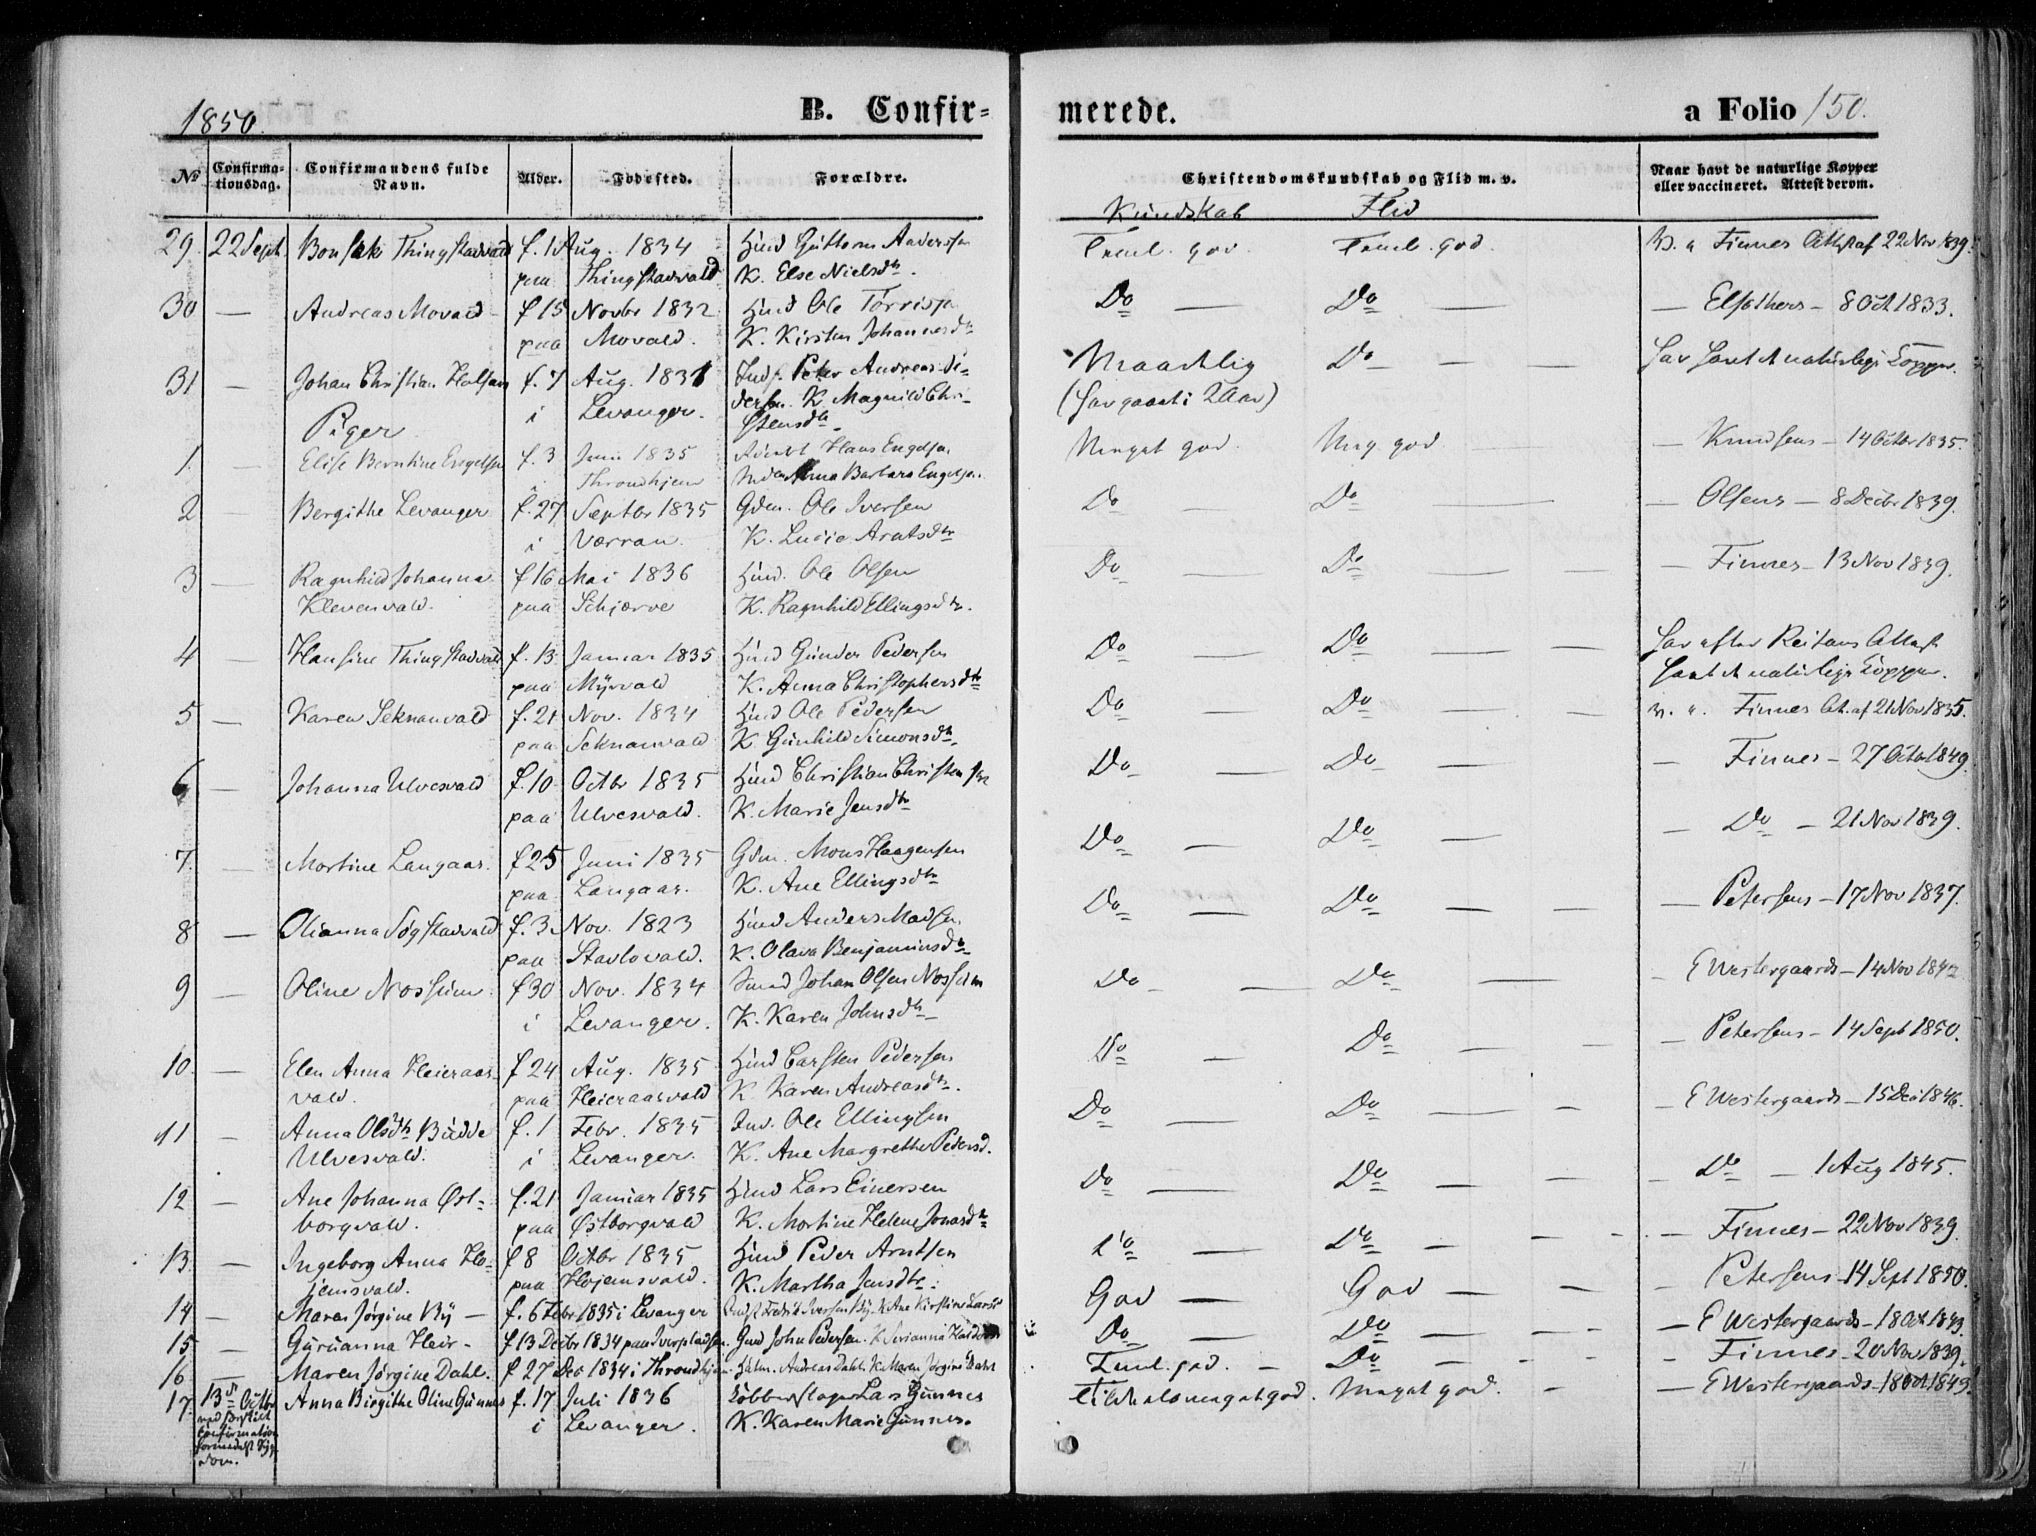 1850. B. Confir=
merede. a Folio 150.
No Confirma-tionsdag. Confirmandens fulde Navn. Alder. Fødested. Forældre. Christendomskundskab og Flid m. v. Naar havt de naturlige Kopper eller vaccineret. Attest derom.
Kundskab Flid
29. 22 Sept. Thingstadvald f. 1 Aug. 1834 Huusd Guttorm Anderssen Teml. god Teml. god. V. a Finnes Attest af 22 Nov 1839.
paa Thingstadvald K. Else Nielsdtr.
30 — Andreas Movald f 15 Novbr 1832 Husd Ole Torrissen Do — Do — — 8 Oct 1833.
paa Movald. K. Kirsten Johannesdtr
31 — Johan Christian f. 7 Aug. 1831 Inds. Peter Andreas Maadelig Do — — har havt d naturlige Kopper.
i Levanger. K Magnild Chri- (har gaaet i 2 Aar)
stensdtr.
Piger
1. — Elise Berntine Engelsen f. 3 Juni 1835 Hans Engelsen Meget god. Meg god — Knudsens — 14 Octbr 1835.
i Throndhjem Anna Barbara Engelsen.
2 — Bergithe Levanger f. 27 Septbr 1835 Gdm. Ole Iversen Do — Do — — Olsens — 8 Decbr 1839.
i Værran. K. Lucie Arntsdtr
3 — Ragnhild Johanna f 16 Mai 1836 Husd. Ole Olsen Do — Do — — Finnes — 13 Nov 1839.
Klevenvald. paa Schjerve K. Ragnhild Ellingsdtr.
4 — Hansine Thingstadvald f. 13 Januar 1835 Husd Gunder Pedersen Do — Do — — har efter Reitans Attest
paa Myrvald K. Anna Christophersdtr havt d naturlige Kopper.
5 — Karen Seknanvald f. 21 Nov. 1834 Husd Ole Pedersen Do — Do — — V. a. Finnes At. af 21 Nov 1835.
paa Seknanvald K. Gunhild Simonsdtr.
6 — Johanna Ulvesvald f. 10 Octbr 1835 Husd Christian Christensen Do — Do — — Finnes — 27 Octbr 1849.
paa Ulvesvald. K. Marie Jensdtr
7. — Mortine Langaas. f 25 Juni 1835 Gdm. Mons Haagensen Do — Do — — Do — 21 Nov 1839.
paa Langaas. K. Ane Ellingsdtr
8 — Olianna Søgstadvald f. 3 Nov. 1823 Husd Anders Madsen Do — Do — — Petersens — 17 Nov 1837.
paa Stavlovald. K. Olava Benjaminsdtr
9 — Oline Nossum. f 30 Nov. 1834 Smed Johan Olsen Nossum Do — Do — — E Westergaards — 14 Nov 1842
i Levanger. K. Karen Johnsdtr
10. — Elen Anna Heieraas- f 24 Aug. 1835 Husd Carsten Pedersen Do — Do — — Petersens — 14 Sept 1850.
vald. paa Heieraasvald K Karen Andreasdtr.
11 — Anna Olsdtr Budde f. 1 Febr. 1835 Ind. Ole Ellingsen Do — Do — — E Westergaards — 15 Dec 1846.
Ulvesvald. i Levanger. K. Ane Margrethe Pedersd.
12 — Ane Johanna Øst- f. 21 Januar 1835 Husd Lars Einersen Do — Do — — Do — 1 Aug 1845.
borgvald. paa Østborgvald K. Mortine Helene Jonasdtr
13. — Ingeborg Anna Ho- f 8 Octbr 1835 Husd Peder Arntsen Do — Do — — Finnes — 22 Nov 1839.
jemsvald. paa Hojemsvald. K. Martha Jensdtr.
14 — Maren Jørgine By — f. 6 Febr 1835 i Levanger Iversen By. K Ane Kirstine God — God — — Petersens — 14 Sept 1850.
15 — Guruanna Heir- f 13 Decbr 1834 paa Iverpladsen Gmd John Pedersen. Do — Do — — E Westergaards — 18 Oct 1843.
16 — Maren Jørgine Dahl. f 27 Dec 1834 i Throndhjem Andreas Dahl. K Maren Jørgine Dahl Teml. god. — Do — — Finnes — 20 Nov 1839.
17. 13de Octbr Anna Birgithe Oline Gunnes f. 17 Juli 1836 Kobberslager Lars Gunnes Meget god. — E Westergaards 18 Oct 1849.
ved særskilt Confirmation formedelst Syg-dom. i Levanger. K. Karen Marie Gunnes.